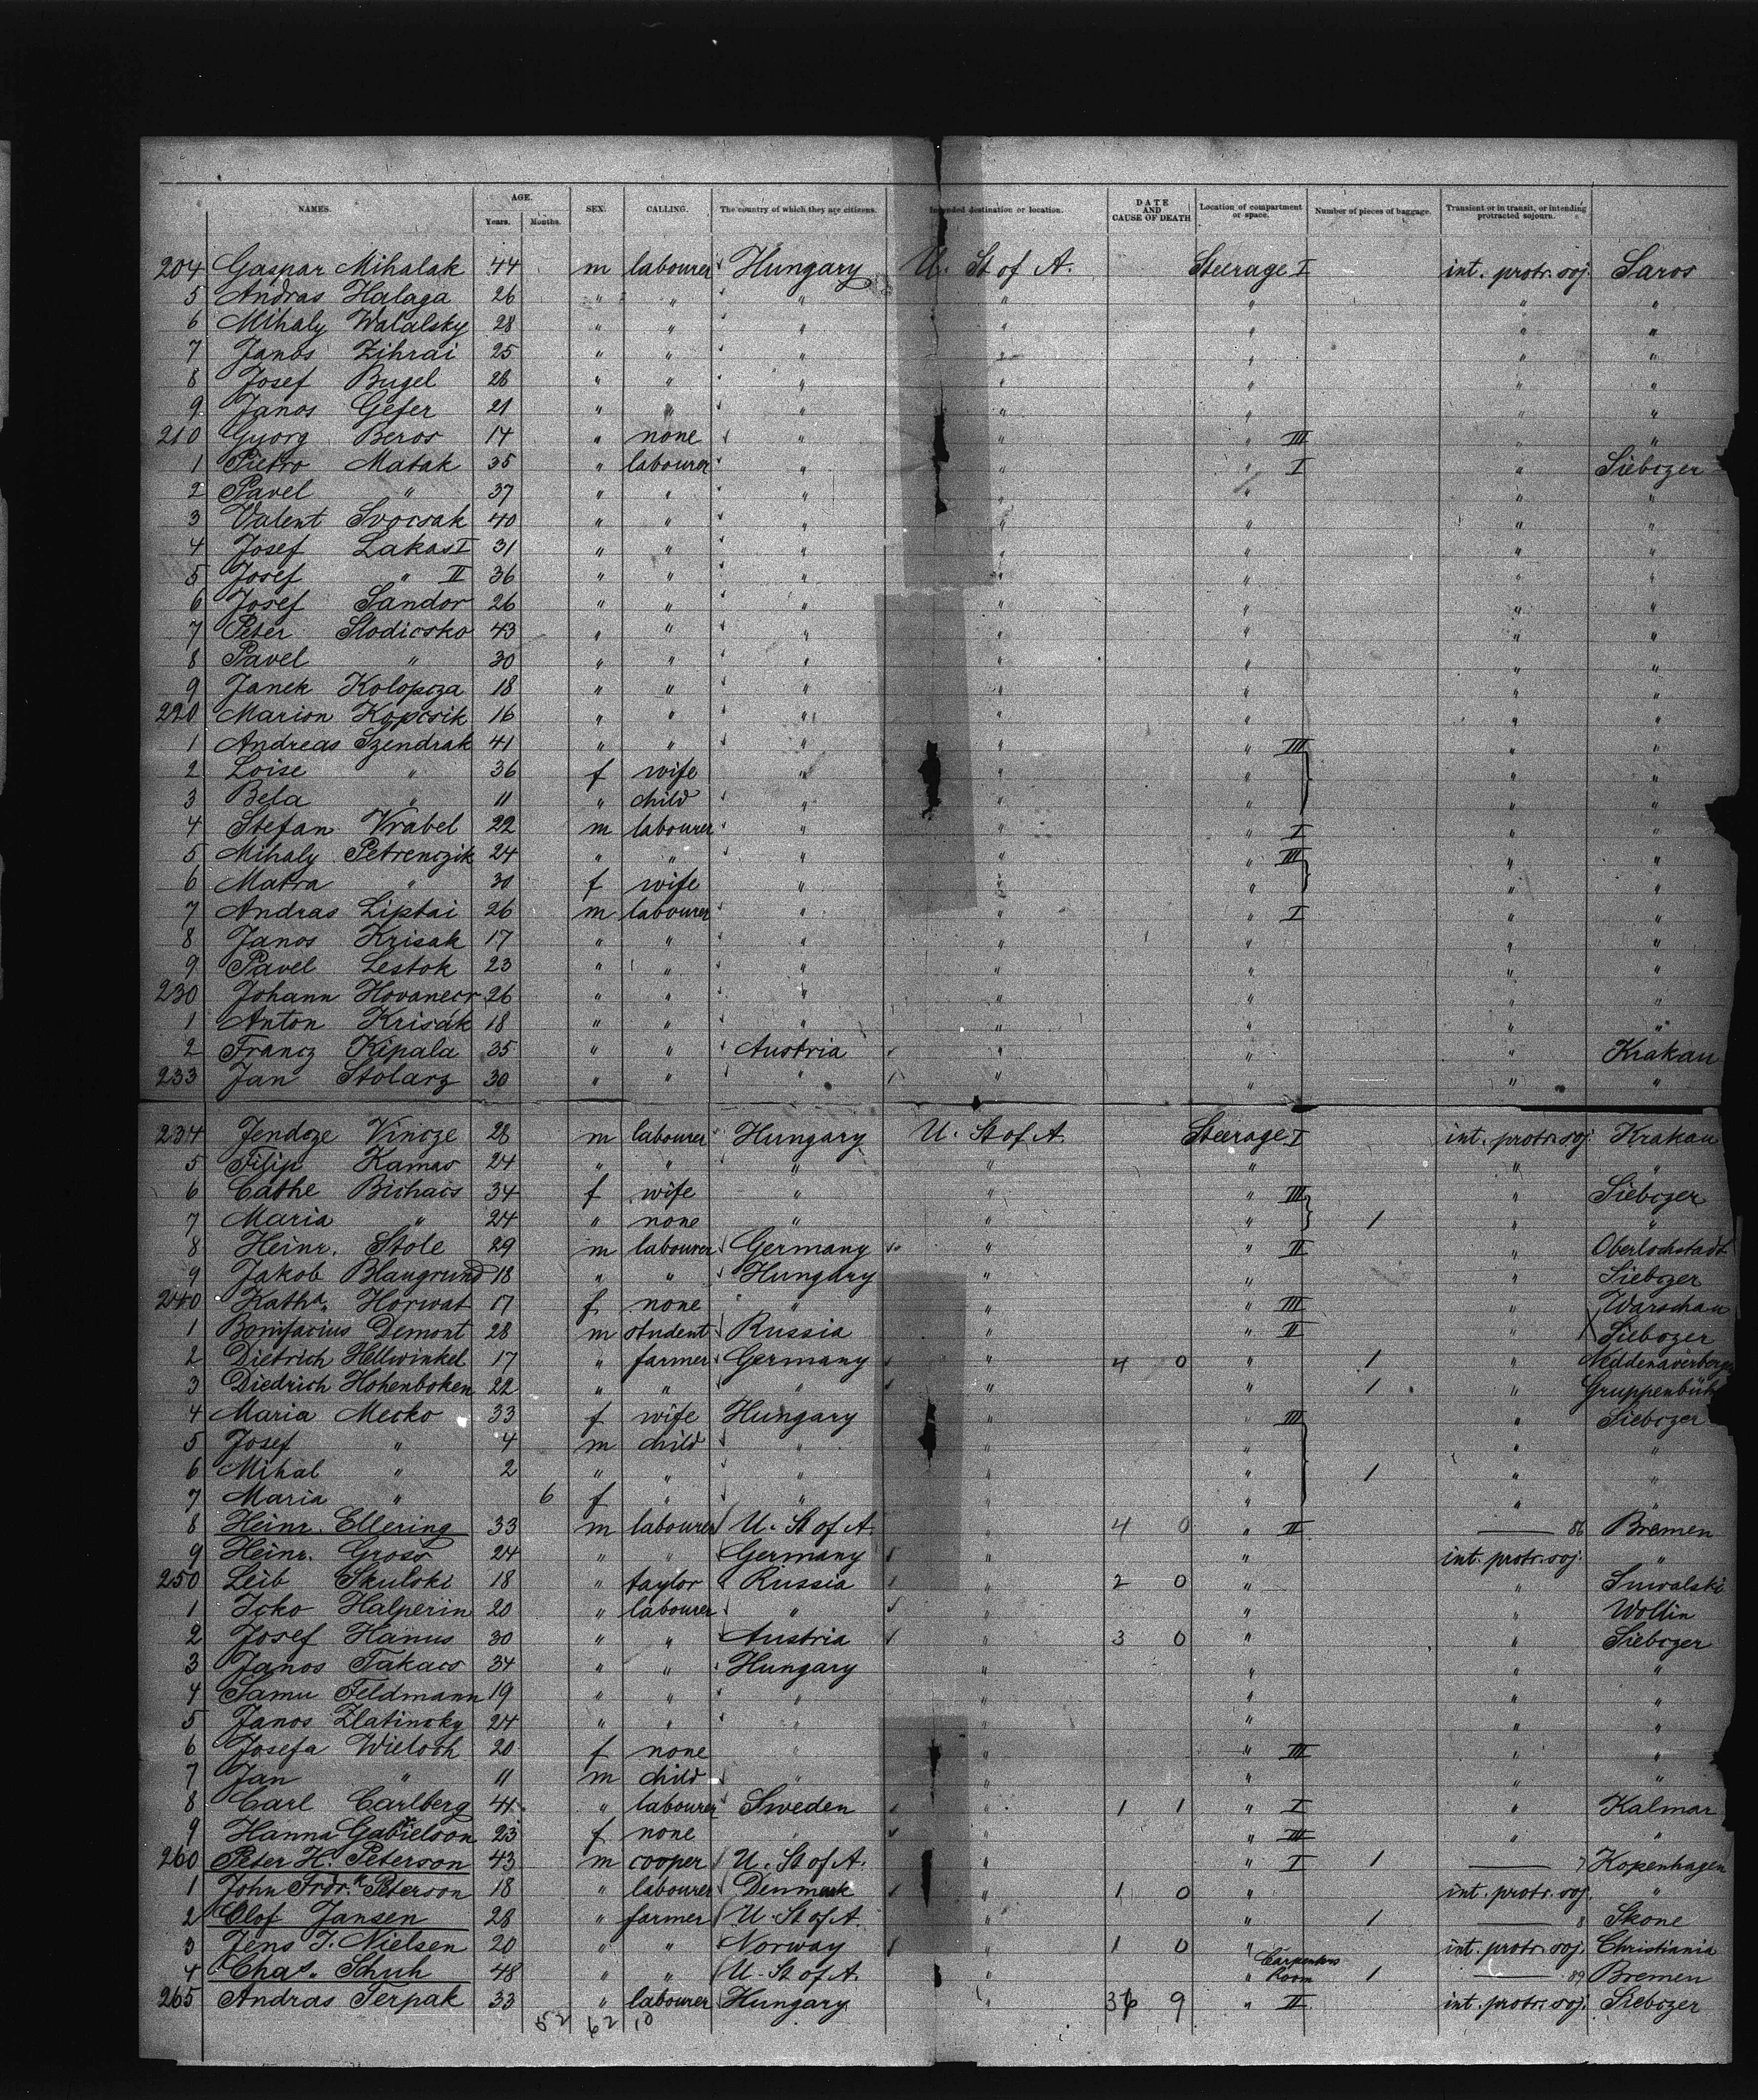 NAMES. AGE. Years. Months. SEX. CALLING. The country of which they are citizens. Intended destination or location. DATE AND CAUSE OF DEATH Location of compartment or space. Number of pieces of baggage. Transient or in transit, or intending protracted sojourn.
204 Gaspar Mihalak 44 m labourer Hungary U. St of A. Steerage I int. protr. soj. Saros
5 Andras Halaga 26 " " " " " " "
6 Mihaly Walalsky 28 " " " " " " "
7 Janos Zihrai 25 " " " " " " "
8 Josef Bugel 28 " " " " " " "
9 Janos Gefer 21 " " " " " " "
210 Gyorg Beros 14 " none " " " III " "
1 Pietro Matak 35 " labourer " " " I " Siebczer
2 Pavel " 37 " " " " " " "
3 Valent Svocsak 40 " " " " " " "
4 Josef Lakas I 31 " " " " " " "
5 Josef " II 36 " " " " " " "
6 Josef Sandor 26 " " " " " " "
7 Peter Slodicsko 43 " " " " " " "
8 Pavel " 30 " " " " " " "
9 Janek Kolopcza 18 " " " " " " "
220 Marion Kopcsik 16 " " " " " " "
1 Andreas Szendrak 41 " " " " " III " "
2 Loise " 36 f wife " " " " "
3 Bela " 11 " child " " " " "
4 Stefan Vrabel 22 m labourer " " " I " "
5 Mihaly Petrenczik 24 " " " " " III " "
6 Matra " 30 f wife " " " " "
7 Andras Liptai 26 m labourer " " " I " "
8 Janos Krisak 17 " " " " " " "
9 Pavel Lestok 23 " " " " " " "
230 Johann Hovanecr 26 " " " " " " "
1 Anton Krisák 18 " " " " " " "
2 Francz Kipala 35 " " Austria " " " Krakau
233 Jan Stolarz 30 " " " " " " "
234 Jendcze Vincze 28 m labourer Hungary U. St of A. Steerage I int. protr. soj. Krakau
5 Filip Kamas 24 " " " " " " "
6 Cathe Bichacs 34 f wife " " " III " Siebczer
7 Maria " 24 " none " " " 1 " "
8 Heinr. Stole 29 m labourer Germany " " II " Oberlochstadt
9 Jakob Blaugrund 18 " " Hungary " " " Siebczer
240 Katha. Horwat 17 f none " " " III " Warschau
1 Bonifacius Demont 28 m student Russia " " II " Siebczer
2 Dietrich Hellwinkel 17 " farmer Germany " 4 0 " 1 "
3 Diedrich Hohenboken 22 " " " " " 1 "
4 Maria Mecko 33 f wife Hungary " " III " Siebczer
5 Josef " 4 m child " " " " "
6 Mihal " 2 " " " " " 1 " "
7 Maria " 6 f " " " " " "
8 Heinr. Ellering 33 m labourer U. St of A. " 4 0 " II — 86 Bremen
9 Heinr. Gross 24 " " Germany " " int. protr. soj. "
250 Leib Skulski 18 " taylor Russia " 2 0 " " Suwalski
1 Icko Halperin 20 " labourer " " " " Wollin
2 Josef Hanus 30 " " Austria " 3 0 " " Siebczer
3 Janos Takacs 34 " " Hungary " " " "
4 Samu Feldmann 19 " " " " " " "
5 Janos Zlatinsky 24 " " " " " " "
6 Josefa Wieloch 20 f none " " " III " "
7 Jan " 11 m child " " " " "
8 Carl Carlberg 41 " labourer Sweden " 1 1 " I " Kalmar
9 Hanna Gabrielson 23 f none " " " III " "
260 Peter K. Peterson 43 m cooper U. St of A. " " I 1 — 7 Kopenhagen
1 John Frdrk Peterson 18 " labourer Denmark " 1 0 " int. protr. soj. "
2 Olof Jansen 28 " farmer U. St of A. " " 1 — 8 Skone
3 Jens J. Nielsen 20 " " Norway " 1 0 " int. protr. soj. Christiania
4 Chas. Schuh 48 " " U. St of A. " " Carpenters Room 1 — 89 Bremen
265 Andras Terpak 33 " labourer Hungary " 9 " II int. protr. soj. Siebczer
52 62 10